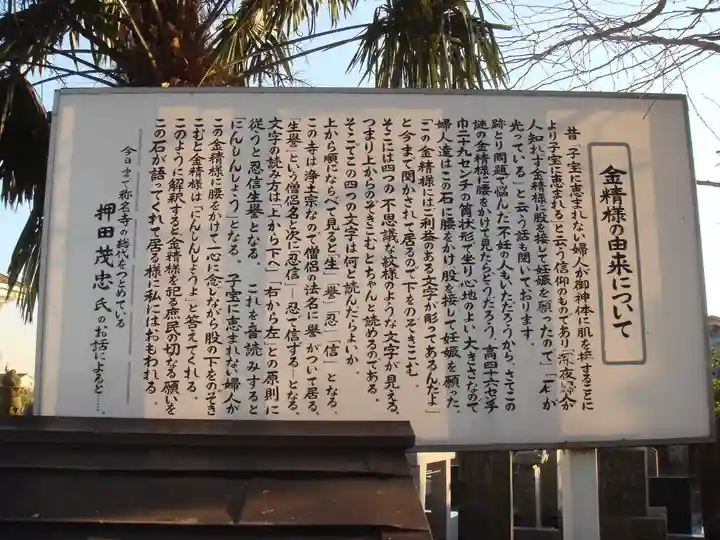 金精様の由来について
昔「子宝に恵まれない婦人が御神体に肌を接することに
より子宝に恵まれる」と云う信仰のものであり「深夜、婦人が
人知れず金精様に股を接して妊娠を願ったので」「一七が
光っている」と云う話も聞いております。
跡とり問題で悩んだ不妊の人もいただろうから、さてこの
謎の金精様に腰をかけて見たらどうだろう、高四十六センチ
巾二十九センチの筒状形で坐り心地のよい大きさなので
婦人達はこの石に腰をかけ股を接して妊娠を願った、
「この金精様にはご利益のある文字が彫ってあるんだよ」
と今まで聞かされて居るので下をのぞきこむ。
そこには四つの不思議な紋様のような文字が見える、
つまり上からのぞきこむとちゃんと読めるのである
そこでこの四つの文字は何と読んだらよいか、
上から順にならべて見ると「生」「誉」「忍」「信」となる、
この寺は浄土宗なので僧侶の法名に誉がついて居る、
「生誉」という僧侶名と次に「忍信」―忍で信ずる―となる、
文字の読み方は「上から下へ」「右から左」との原則に
従うと忍信生誉となる。これを音読みすると
「にんしんしょう」となる。子宝に恵まれない婦人が
この金精様に腰をかけて一心に念じながら股の下をのぞき
こむと金精様は「にんしんしょうよ」と答えてくれる。
このように解釈すると金精様を記る庶民の切なる願いを
この石が語ってくれて居る様に私にはおもわれる
今日まで称名寺の総代をつとめている
押田茂忠氏のお話によると……